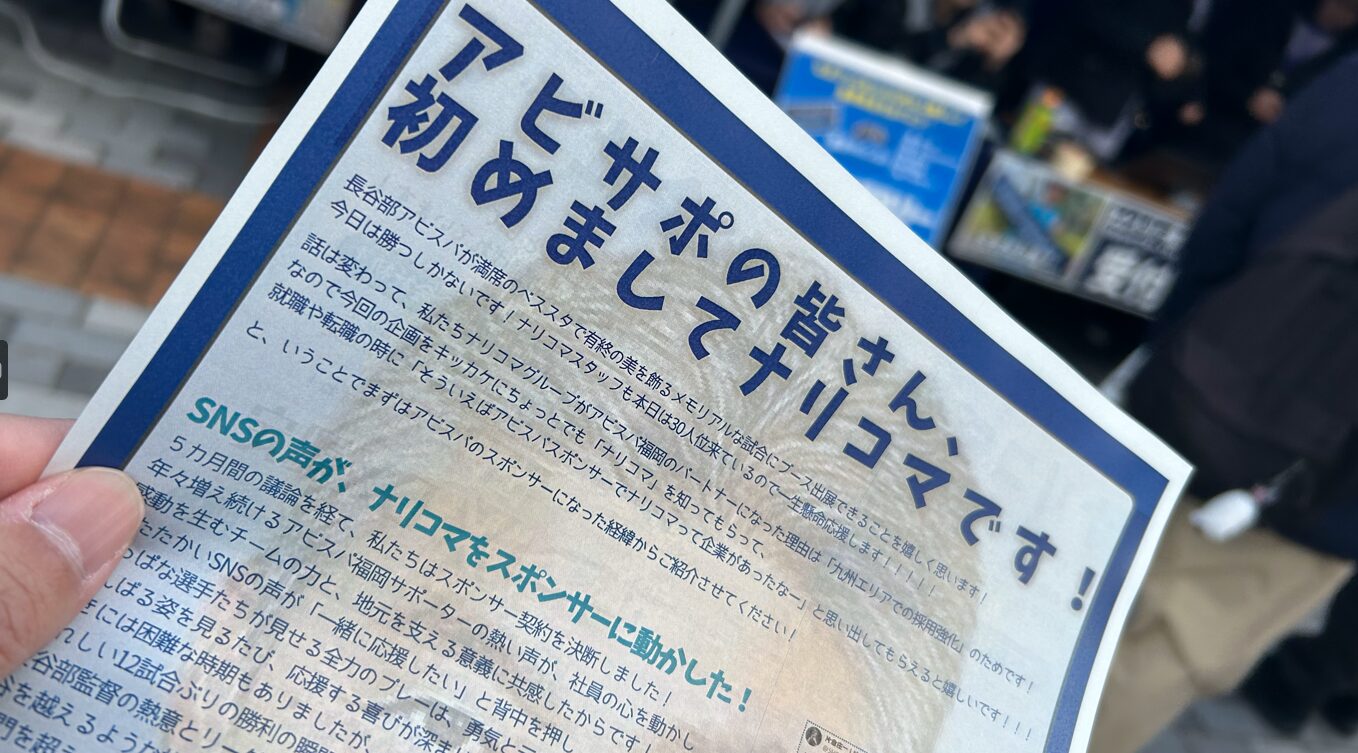 アビサポの皆さん、
初めましてナリコマです!
長谷部アビスパが満席のベススタで有終の美を飾るメモリアルな試合にブース出展できることを嬉しく思います!
今日は勝つしかないです!ナリコマスタッフも本日は30人位来ているので一生懸命応援します!!!!!
話は変わって、私たちナリコマグループがアビスパ福岡のパートナーになった理由は「九州エリアでの採用強化」のためです!
なので今回の企画をキッカケにちょっとでも「ナリコマ」を知ってもらって、
就職や転職の時に「そういえばアビスパスポンサーでナリコマって企業があったなー」と思い出してもらえると嬉しいです!!!
と、いうことでまずはアビスパのスポンサーになった経緯からご紹介させてください!
SNSの声が、ナリコマをスポンサーに動かした!
5カ月間の議論を経て、私たちはスポンサー契約を決断しました!
年々増え続けるアビスパ福岡サポーターの熱い声が、社員の心を動かし
感動を生むチームの力と、地元を支える意義に共感したからです!
たたかいSNSの声が「一緒に応援したい」と背中を押し
っぱな選手たちが見せる全力のプレーは、勇気と
しばる姿を見るたび、応援する喜びが深ま
には困難な時期もありましたが
れしい12試合ぶりの勝利の瞬
谷部監督の熱意とリー
を越えるような
門を超
受付